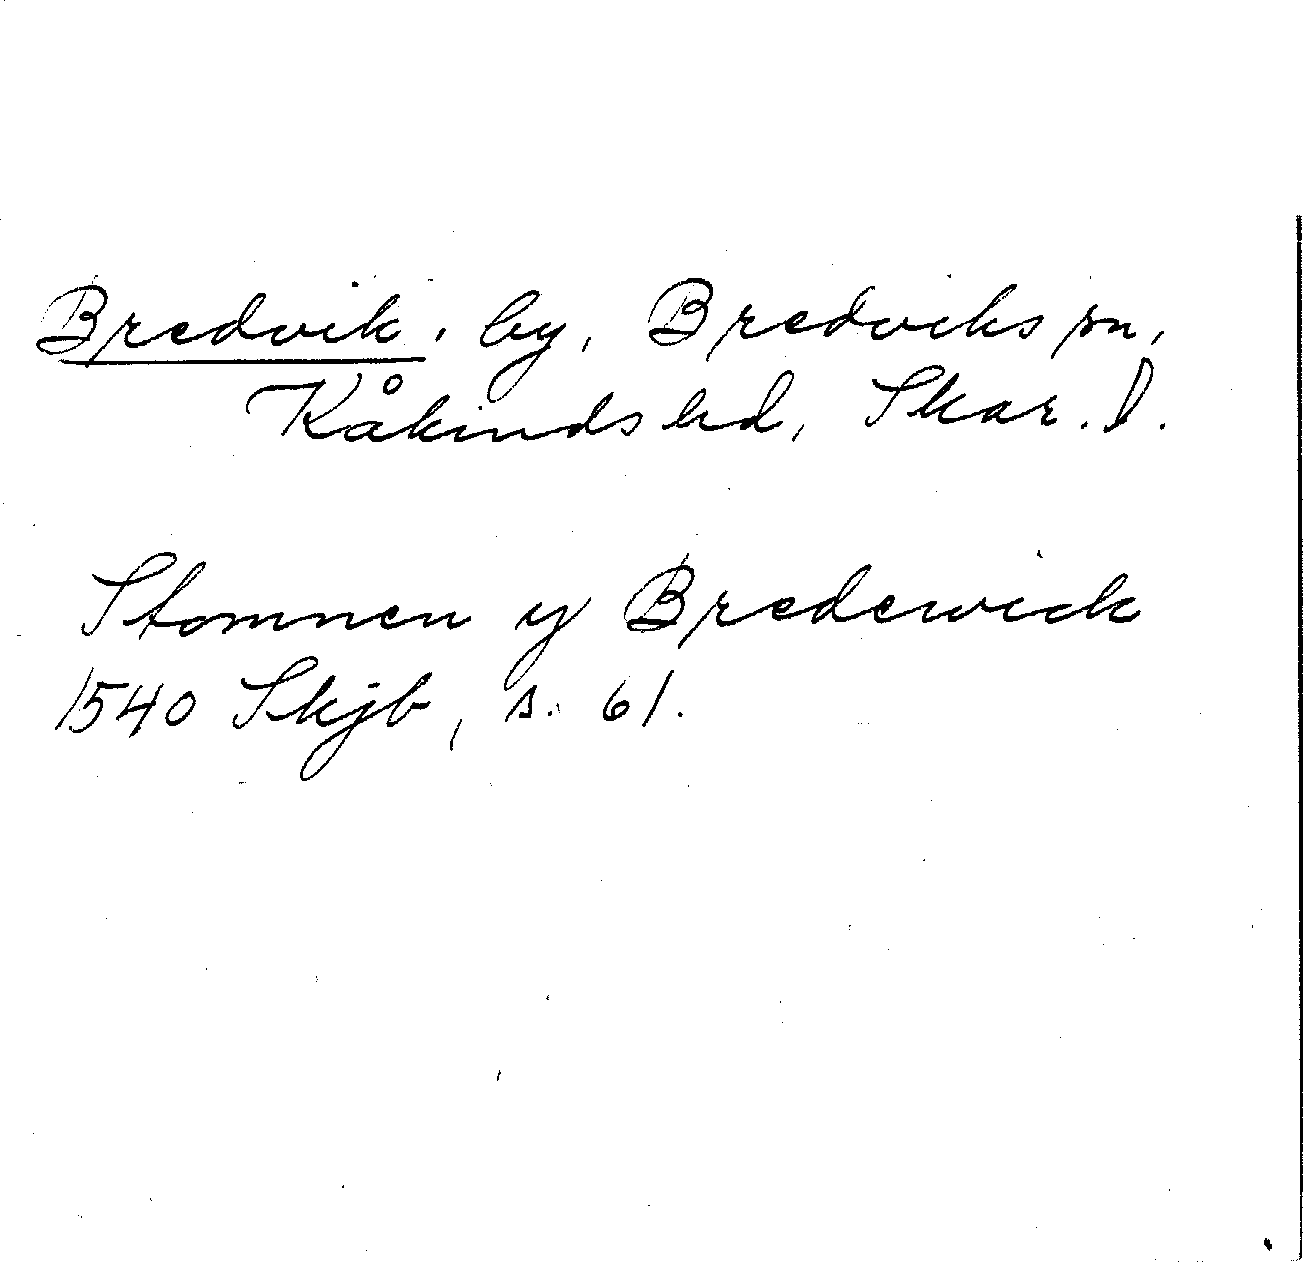 Bredvik, by, Bredviks sn,
Kåkinds hd, Skar. l.
Stomnen y Bredewick
1540 Skjb, s. 61.